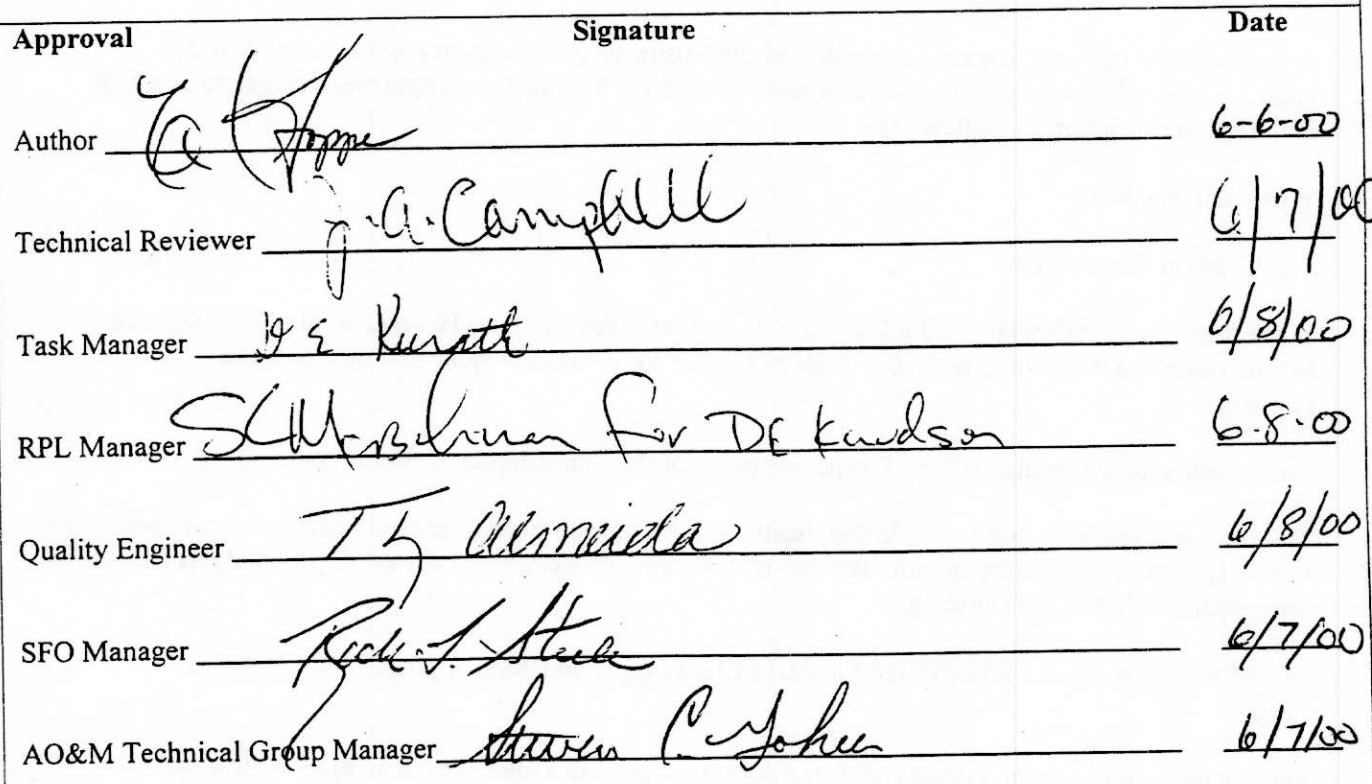 Approval Signature Date
Author Hoppe 6-6-00
Technical Reviewer J.A. Campbell 6/7/00
Task Manager D E Kurath 6/8/00
RPL Manager for DE Knudson 6-8-00
Quality Engineer Almeida 6/8/00
SFO Manager Rick J. Steele 6/7/00
AO&M Technical Group Manager Steven C. 6/7/00